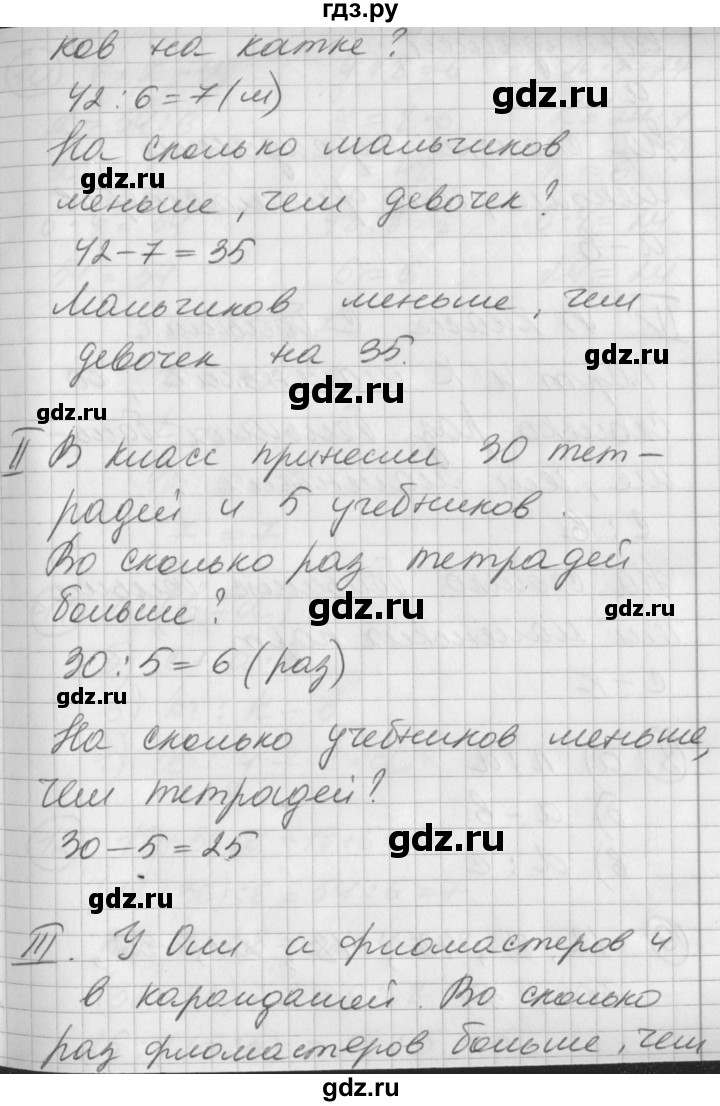 гдз.ру
ков на катке?
42 : 6 = 7 (м)
gdz.ru
На сколько мальчиков
gdz.ru
меньше, чем девочек?
42 - 7 = 35
Мальчиков меньше, чем
девочек на 35.
gdz.ru
gdz.ru
gdz.ru
II В класс принесли 30 тет-
радей и 5 учебников.
Во сколько раз тетрадей
больше?
gdz.ru
gdz.ru
30 : 5 = 6 (раз)
gdz.ru
На сколько учебников меньше,
чем тетрадей?
30 - 5 = 25
gdz.ru
gdz.ru
III. У Оли а фломастеров и
в карандашей. Во сколько
раз фломастеров больше, чем
gdz.ru